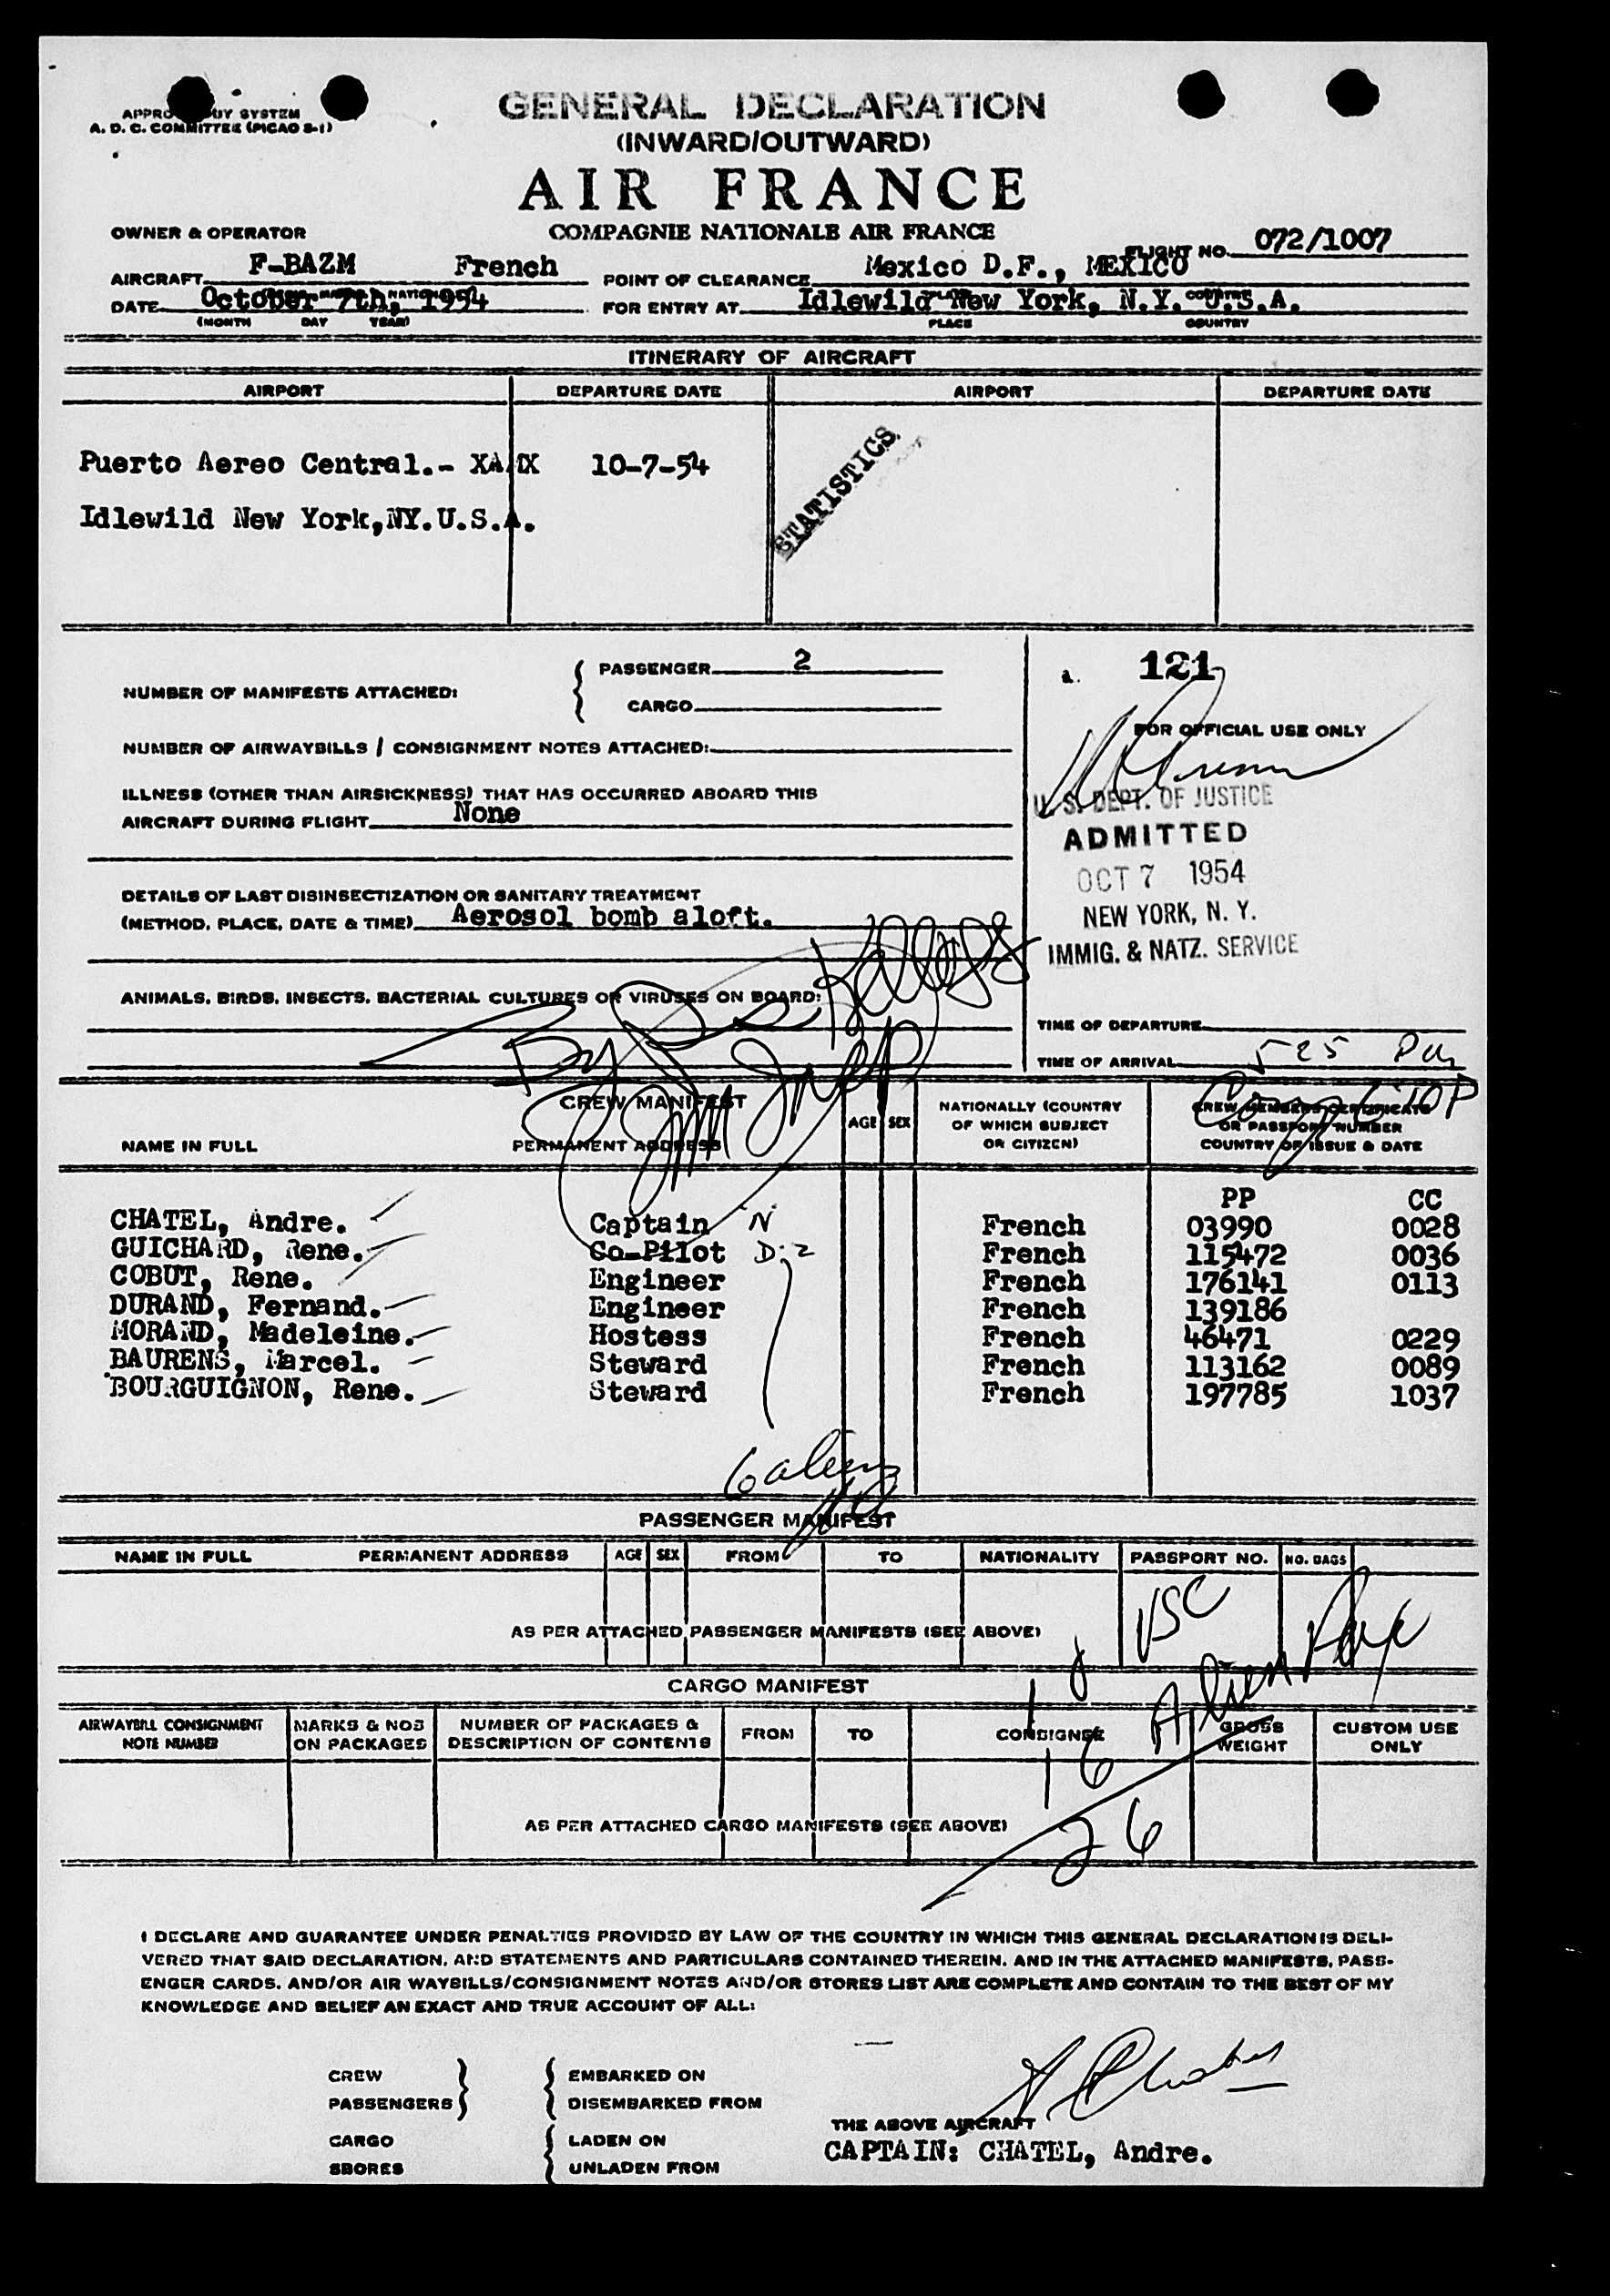 GENERAL DECLARATION
(INWARD/OUTWARD)
BY SYSTEM
A. D. C. COMMITTEE (PICAO S-1)
AIR FRANCE
COMPAGNIE NATIONALE AIR FRANCE
OWNER & OPERATOR
FLIGHT NO. 072/1007
AIRCRAFT F-BAZM French
POINT OF CLEARANCE Mexico D.F., MEXICO
DATE October 7th, 1954
(MONTH DAY YEAR)
FOR ENTRY AT Idlewild New York, N.Y. U.S.A.
PLACE COUNTRY
ITINERARY OF AIRCRAFT
AIRPORT DEPARTURE DATE AIRPORT DEPARTURE DATE
Puerto Aereo Central.- 10-7-54
STATISTICS
Idlewild New York,NY.U.S.A.
NUMBER OF MANIFESTS ATTACHED:
PASSENGER 2
CARGO
121
FOR OFFICIAL USE ONLY
NUMBER OF AIRWAYBILLS / CONSIGNMENT NOTES ATTACHED:
ILLNESS (OTHER THAN AIRSICKNESS) THAT HAS OCCURRED ABOARD THIS
AIRCRAFT DURING FLIGHT None
U. S. DEPT. OF JUSTICE
ADMITTED
OCT 7 1954
NEW YORK, N. Y.
IMMIG. & NATZ. SERVICE
DETAILS OF LAST DISINSECTIZATION OR SANITARY TREATMENT
(METHOD, PLACE, DATE & TIME) Aerosol bomb aloft.
ANIMALS, BIRDS, INSECTS, BACTERIAL CULTURES OR VIRUSES ON BOARD:
TIME OF DEPARTURE
TIME OF ARRIVAL 525 Pm
CREW MANIFEST
NAME IN FULL PERMANENT ADDRESS AGE SEX
NATIONALLY (COUNTRY
OF WHICH SUBJECT
OR CITIZEN)
CREW MEMBERS CERTIFICATE
OR PASSPORT NUMBER
COUNTRY OF ISSUE & DATE
PP CC
CHATEL, Andre. Captain N French 03990 0028
GUICHARD, Rene. Co-Pilot D-2 French 115472 0036
COBUT, Rene. Engineer French 176141 0113
DURAND, Fernand. Engineer French 139186
MORAND, Madeleine. Hostess French 46471 0229
BAURENS, Marcel. Steward French 113162 0089
BOURGUIGNON, Rene. Steward French 197785 1037
PASSENGER MANIFEST
NAME IN FULL PERMANENT ADDRESS AGE SEX FROM TO NATIONALITY PASSPORT NO. NO. BAGS
AS PER ATTACHED PASSENGER MANIFESTS (SEE ABOVE)
USC
Alien
CARGO MANIFEST
AIRWAYBILL CONSIGNMENT
NOTE NUMBER
MARKS & NOS
ON PACKAGES
NUMBER OF PACKAGES &
DESCRIPTION OF CONTENTS
FROM TO CONSIGNEE
GROSS
WEIGHT
CUSTOM USE
ONLY
16
26
AS PER ATTACHED CARGO MANIFESTS (SEE ABOVE)
I DECLARE AND GUARANTEE UNDER PENALTIES PROVIDED BY LAW OF THE COUNTRY IN WHICH THIS GENERAL DECLARATION IS DELI-
VERED THAT SAID DECLARATION, AND STATEMENTS AND PARTICULARS CONTAINED THEREIN, AND IN THE ATTACHED MANIFESTS, PASS-
ENGER CARDS, AND/OR AIR WAYBILLS/CONSIGNMENT NOTES AND/OR STORES LIST ARE COMPLETE AND CONTAIN TO THE BEST OF MY
KNOWLEDGE AND BELIEF AN EXACT AND TRUE ACCOUNT OF ALL:
CREW
PASSENGERS
EMBARKED ON
DISEMBARKED FROM
CARGO
SBORES
LADEN ON
UNLADEN FROM
THE ABOVE AIRCRAFT
CAPTAIN: CHATEL, Andre.